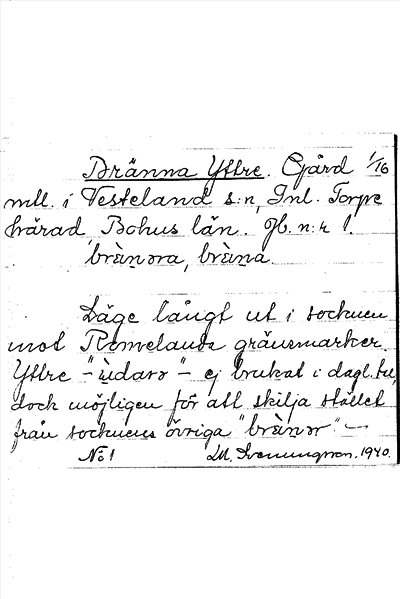 Bränna Yttre. Gård 1/16
mtl. i Vesteland s:n, Inl. Torpe
härad, Bohus län. Jb. n:r 1.
brä̀ṇəra, brä̀ṇa.
Läge långt ut i socknen
mot Romelanda gränsmarker.
Yttre -"ùdarə"- ej brukat i dagl. tal,
dock möjligen för att skilja stället
från socknens övriga "brä̀ṇər" —
No 1 M. Svenungsson. 1940.